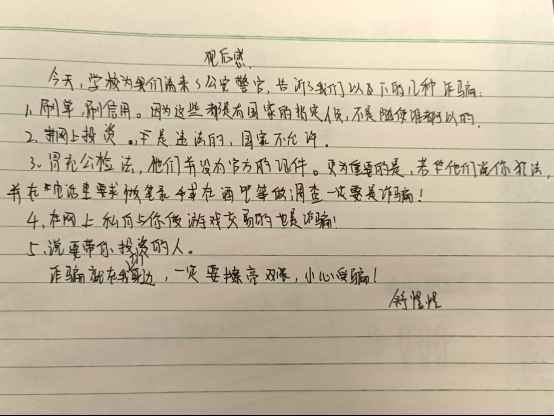 观后感
今天,学校为我们请来了公安警官,告诉了我们以下的几种诈骗:
1、刷单,刷信用。因为这些都是有国家的指定人员,不是随便谁都可以的.
2、网上投资。是违法的,国家不允许.
3、冒充公检法,他们并没有官方的证件。更为重要的是,若他们说你犯法,
并在电话里要求做笔录或在酒吧等做调查一定要是诈骗!
4、在网上私自与你做游戏交易的也是诈骗!
5、说要带你投资的人。
诈骗就在我们身边,一定要擦亮双眼,小心受骗!